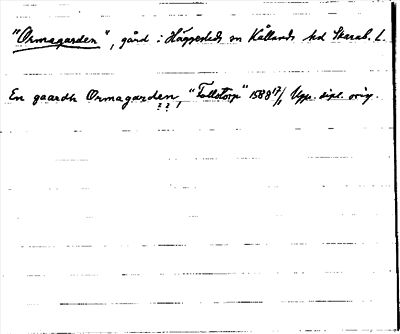 "Ormagarden", gård i Häggesleds sn Kållands hd Skarab. L.
En gaardh Ormagarden, "Tollstorp" 1588 17/1 Upps. dipl. orig.
? ?